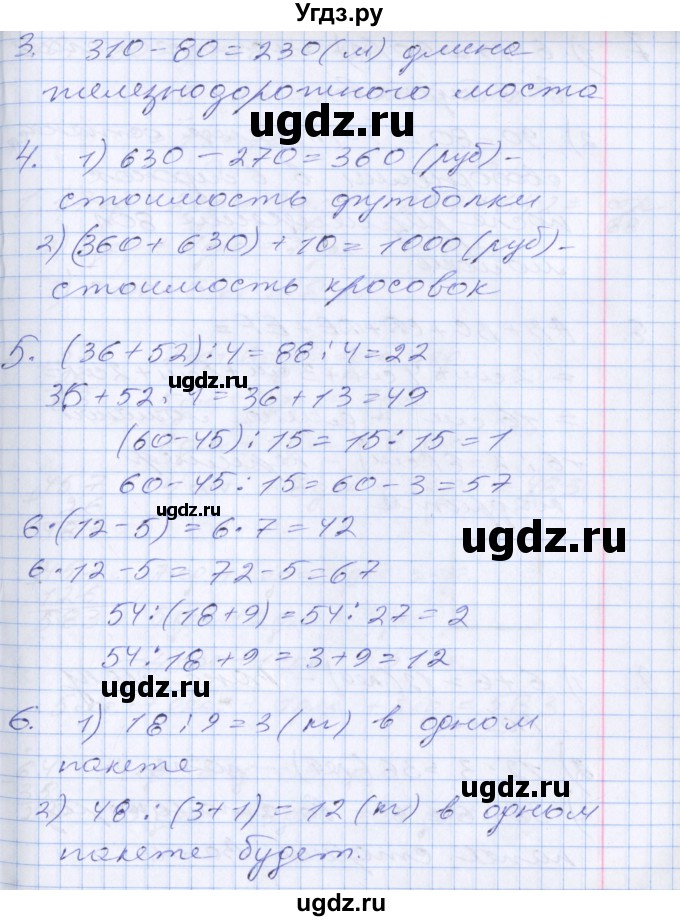 Угдз.ру
3. 310-80=230(м) длина
железнодорожного моста
ugdz.ru
4. 1) 630-270=360(руб)-
стоимость футболки
2) (360+630)+10=1000(руб)-
стоимость кросовок
5. (36+52):4=88:4=22
ugdz.ru
36+52:4=36+13=49
(60-45):15=15:15=1
60-45:15=60-3=57
ugdz.ru
6·(12-5)=6·7=42
ugdz.ru
6·12-5=72-5=67
54:(18+9)=54:27=2
54:18+9=3+9=12
ugdz.ru
6. 1) 18:9=3(м) в одном
пакете
ugdz.ru
2) 48:(3+1)=12(м) в одном
пакете будет.
ugdz.ru
ugdz.ru